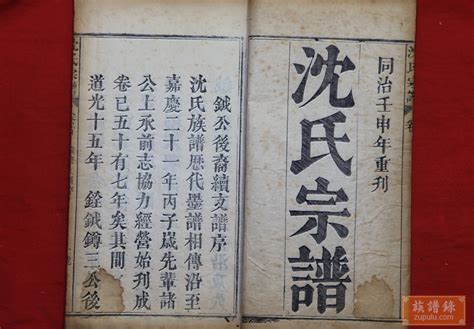 同治壬申年重刊
沈氏宗譜
鉞公後裔續文譜序
沈氏族譜歷代墨譜相傳沿至
嘉慶二十一年丙子歲先輩諸
公上承前志協力經營始刋成
卷已五十有七年矣其間
道光十五年 銓鉞鐏三公後
族譜錄
zupulu.com